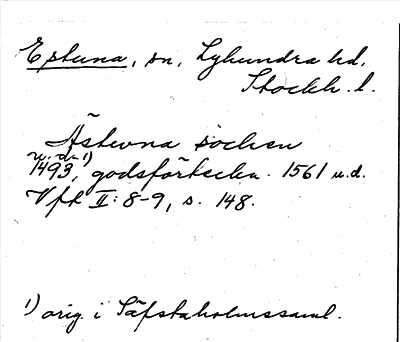 Estuna, sn, Lyhundra hd,
Stockh. l.
Ästevna sochen
u.d. 1)
1493, godsförteckn. 1561 u.d.
Vft II: 8-9, s. 148.
1) orig. i Säfstaholmssaml.